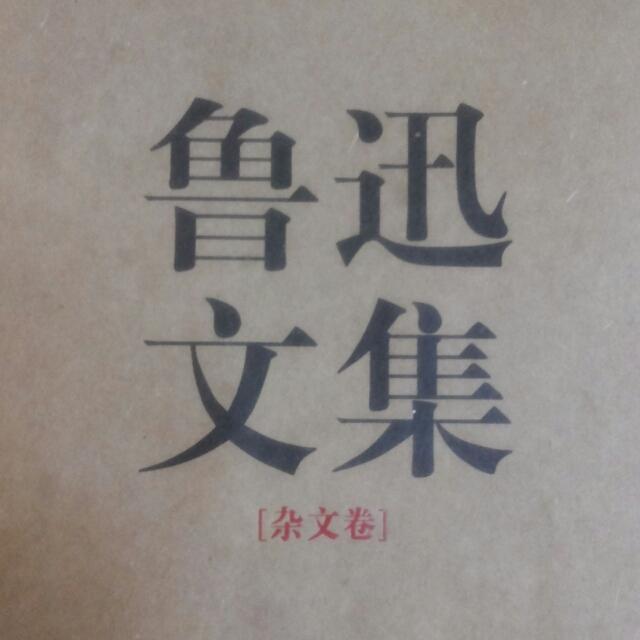 鲁迅
文集
[杂文卷]